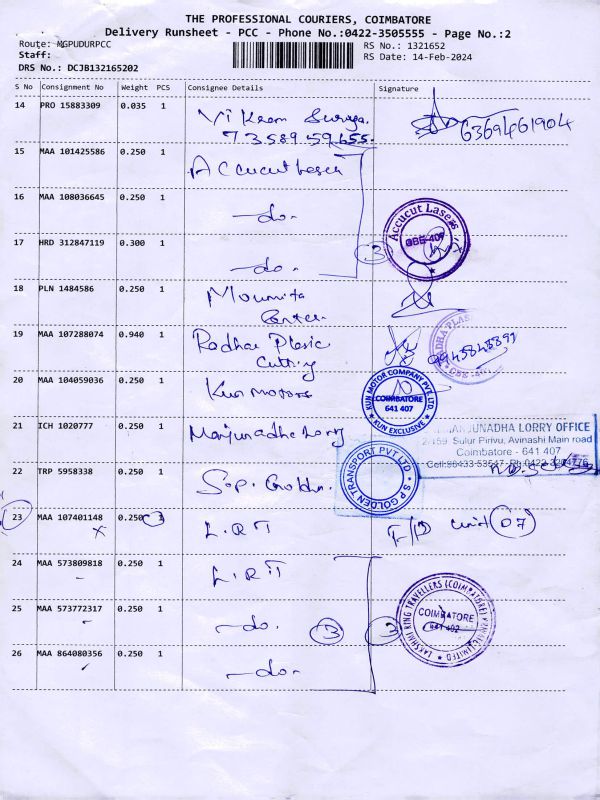 THE PROFESSIONAL COURIERS, COIMBATORE
Delivery Runsheet - PCC - Phone No.:0422-3505555 - Page No.:2
Route: MGPUDURPCC
RS No.: 1321652
Staff:
RS Date: 14-Feb-2024
DRS No.: DCJB132165202
S No Consignment No Weight PCS Consignee Details Signature
14 PRO 15883309 0.035 1 Vikram Surya.
73589 59455. 6369461904
15 MAA 101425586 0.250 1 Accucut Lasers
16 MAA 108036645 0.250 1 -do.
Accucut Lasers
17 HRD 312847119 0.300 1 -do. 3
18 PLN 1484586 0.250 1 Moumita
19 MAA 107288074 0.940 1 Radhai Plasic
Cutting
20 MAA 104059036 0.250 1 Kun Motors
KUN MOTOR COMPANY PVT. LTD.
COIMBATORE
641 407
KUN EXCLUSIVE
21 ICH 1020777 0.250 1 Manjunadha Lorry
MANJUNADHA LORRY OFFICE
2/159 Sulur Pirivu, Avinashi Main road
Coimbatore - 641 407
22 TRP 5958338 0.250 1 S.P. Goldn.
S P GOLDEN TRANSPORT PVT LTD
23 MAA 107401148 0.250 1 L.R.T F/D unit 07
24 MAA 573809818 0.250 1 L.R.T
25 MAA 573772317 0.250 1 -do. 3 3
LAKSHMI RING TRAVELLERS (COIMBATORE) PRIVATE LIMITED
COIMBATORE
641 402
26 MAA 864080356 0.250 1 -do.